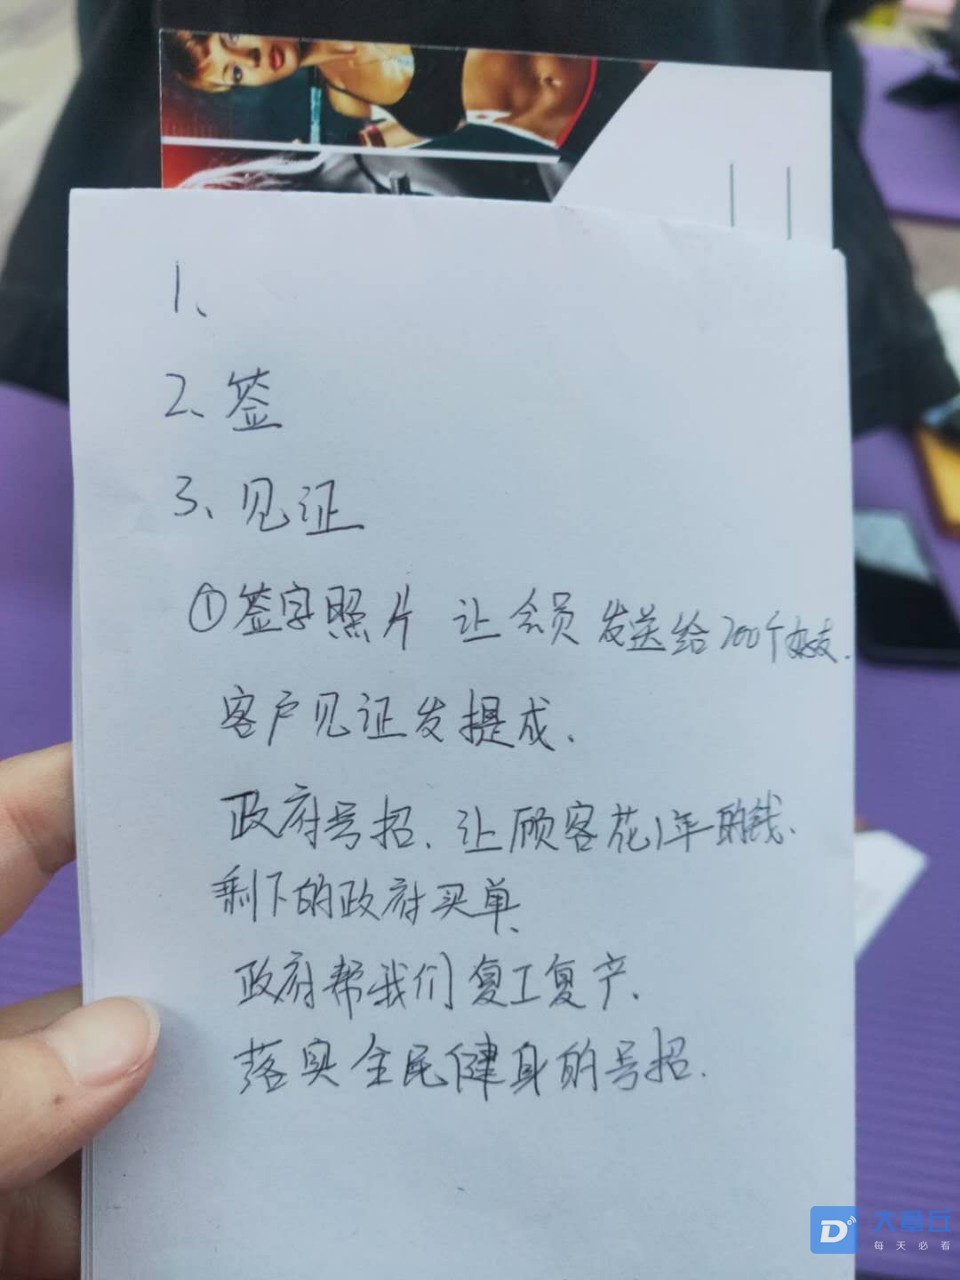 1、
2、签
3、见证
①签字照片 让会员发送给200个好友.
客户见证发提成、
政府号招、让顾客花1年的钱、
剩下的政府买单、
政府帮我们复工复产、
落实全民健身的号招.
D
每天必看